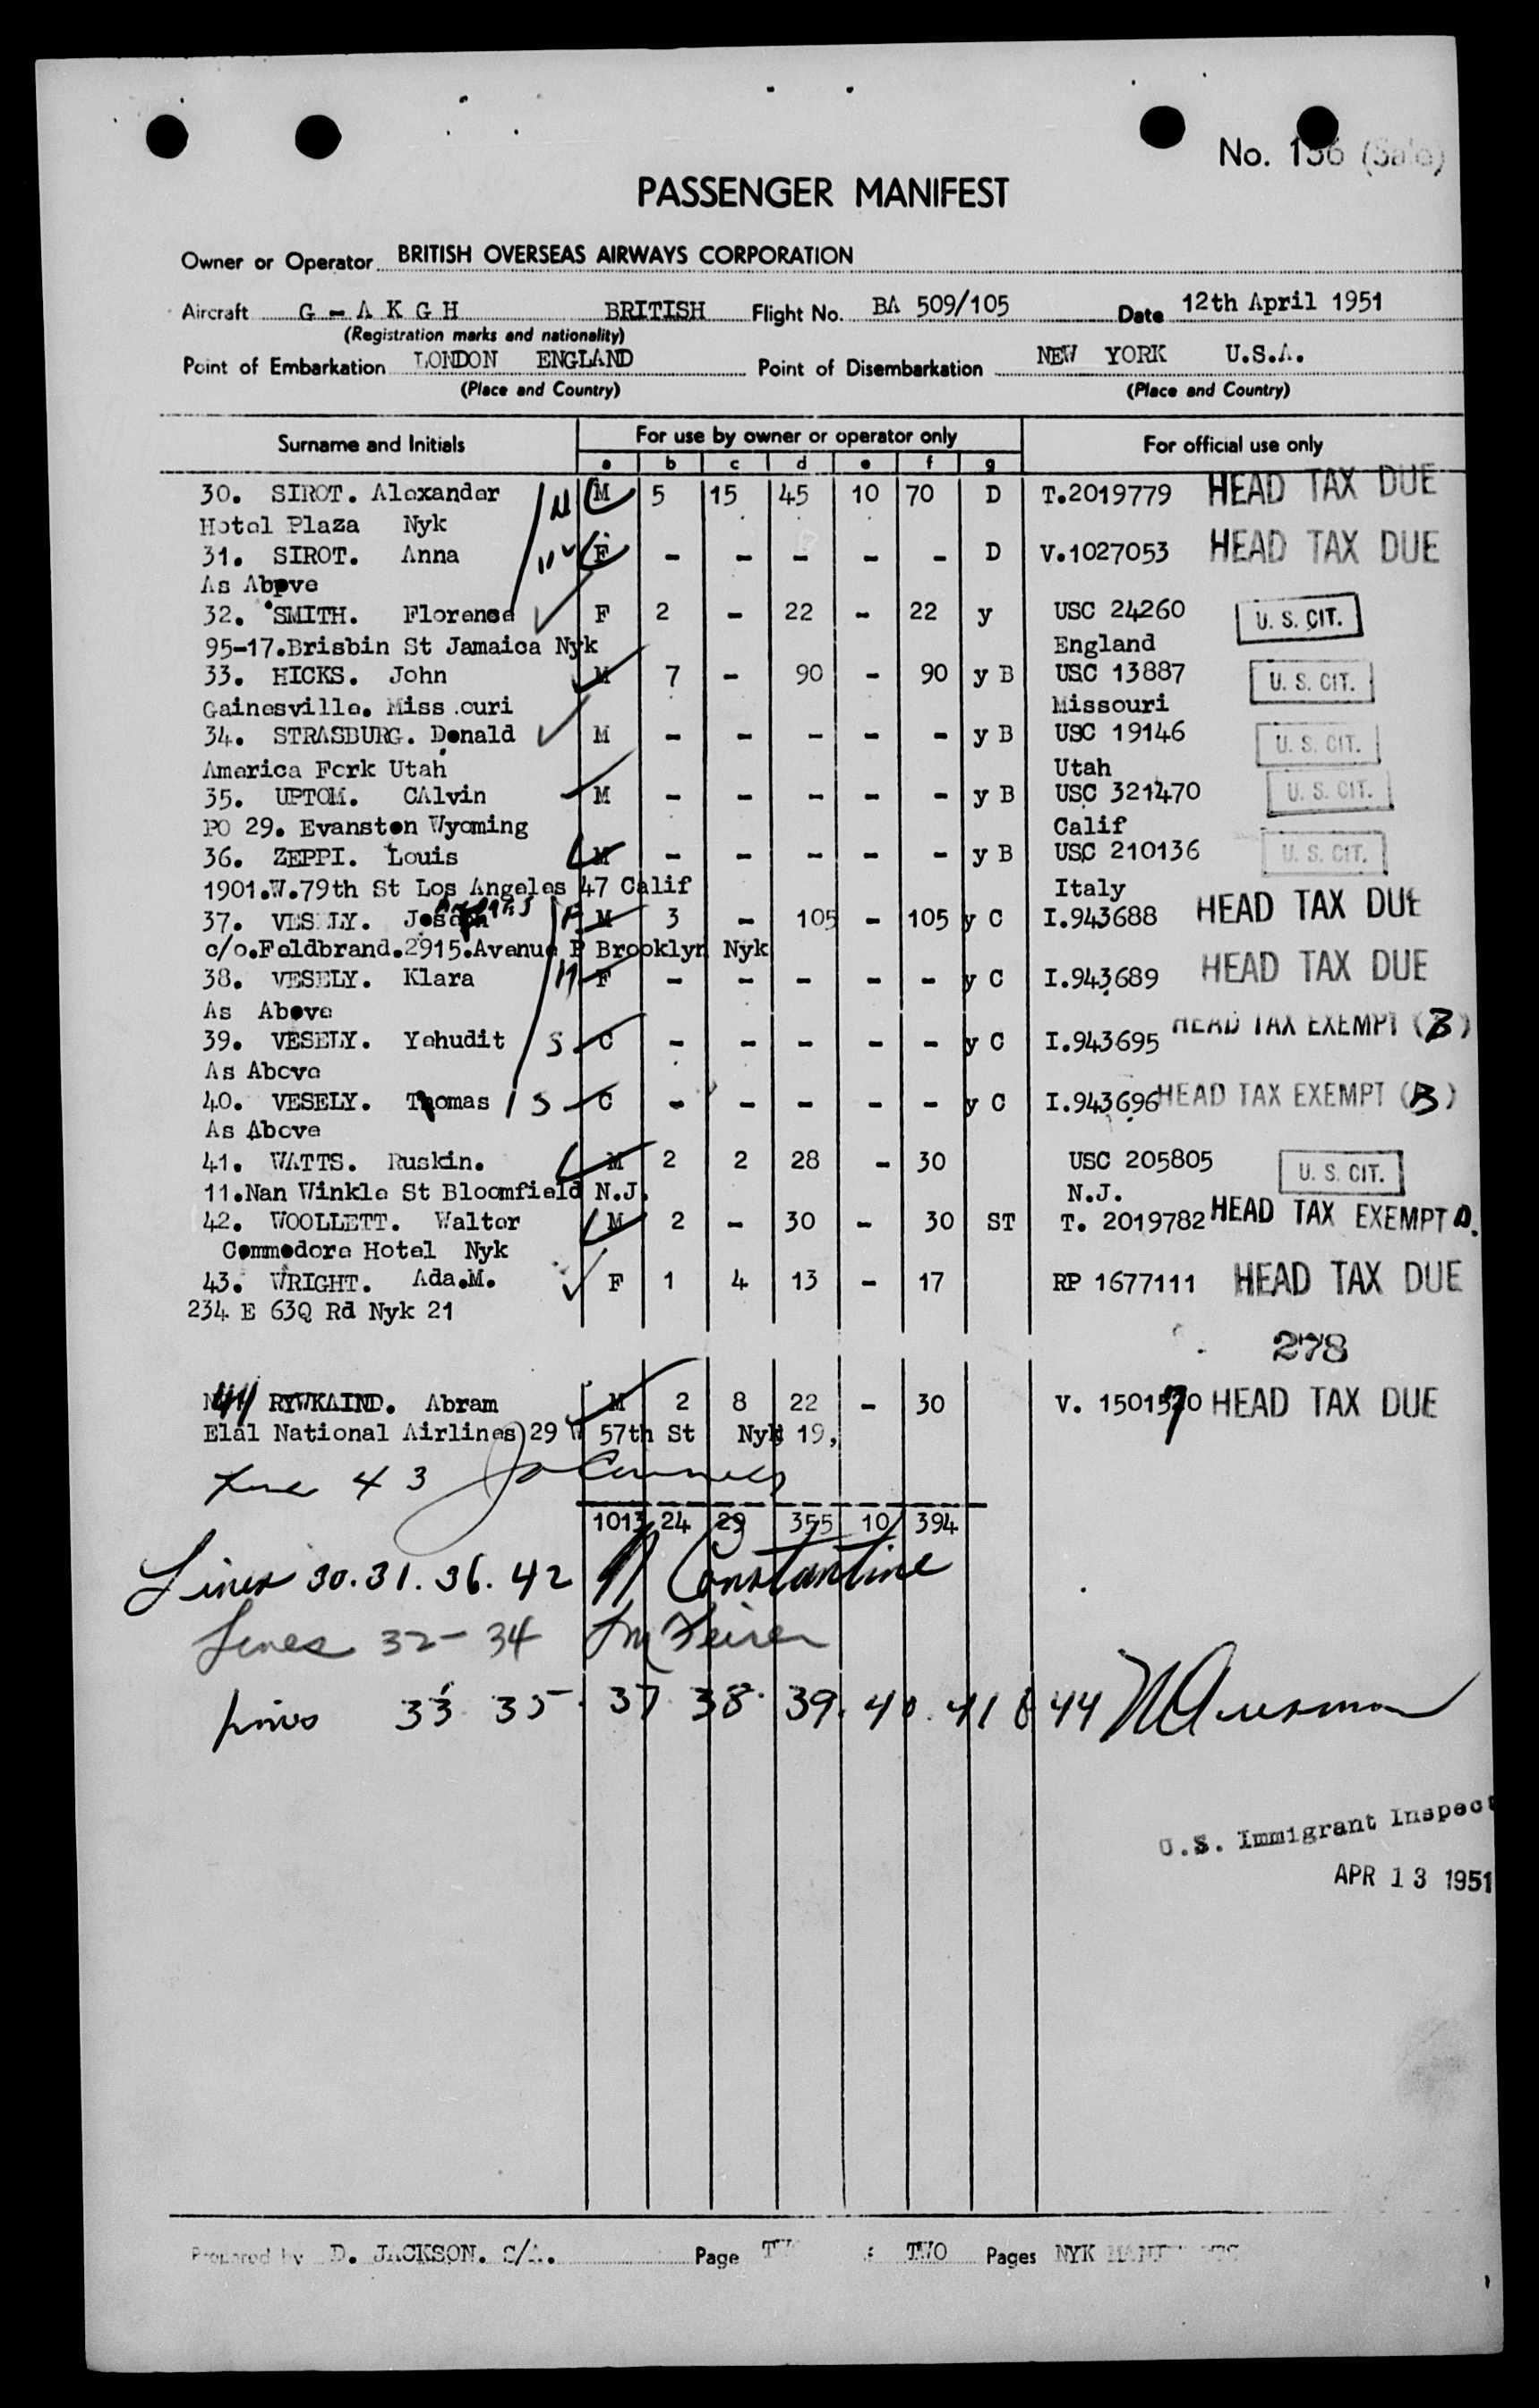 No. 136
PASSENGER MANIFEST
Owner or Operator BRITISH OVERSEAS AIRWAYS CORPORATION
Aircraft G - A K G H BRITISH Flight No. BA 509/105 Date 12th April 1951
(Registration marks and nationality)
Point of Embarkation LONDON ENGLAND Point of Disembarkation NEW YORK U.S.A.
(Place and Country) (Place and Country)
Surname and Initials For use by owner or operator only For official use only
a b c d e f g
30. SIROT. Alexander M 5 15 45 10 70 D T.2019779 HEAD TAX DUE
Hotel Plaza Nyk
31. SIROT. Anna F - - - - - D V.1027053 HEAD TAX DUE
As Above
32. SMITH. Florence F 2 - 22 - 22 y USC 24260 U. S. CIT.
95-17.Brisbin St Jamaica Nyk England
33. HICKS. John M 7 - 90 - 90 y B USC 13887 U. S. CIT.
Gainesville. Miss.ouri Missouri
34. STRASBURG. Donald M - - - - - y B USC 19146 U. S. CIT.
America Fork Utah Utah
35. UPTOM. CAlvin M - - - - - y B USC 321470 U. S. CIT.
PO 29. Evanston Wyoming Calif
36. ZEPPI. Louis M - - - - - y B USC 210136 U. S. CIT.
1901.W.79th St Los Angeles 47 Calif Italy
37. VESELY. Joseph M 3 - 105 - 105 y C I.943688 HEAD TAX DUE
c/o.Feldbrand.2915.Avenue P Brooklyn Nyk
38. VESELY. Klara M F - - - - - y C I.943689 HEAD TAX DUE
As Above
39. VESELY. Yehudit S C - - - - - y C I.943695 HEAD TAX EXEMPT (B)
As Above
40. VESELY. Thomas S C - - - - - y C I.943696 HEAD TAX EXEMPT (B)
As Above
41. WATTS. Ruskin. M 2 2 28 - 30 USC 205805 U. S. CIT.
11.Nan Winkle St Bloomfield N.J. N.J.
42. WOOLLETT. Walter M 2 - 30 - 30 ST T. 2019782 HEAD TAX EXEMPT
Commodore Hotel Nyk
43. WRIGHT. Ada.M. F 1 4 13 - 17 RP 1677111 HEAD TAX DUE
234 E 63Q Rd Nyk 21
278
44 RYWKAIND. Abram M 2 8 22 - 30 V. 1501570 HEAD TAX DUE
Elal National Airlines 29 W 57th St Nyk 19,
Line 43
1013 24 29 355 10 394
Lines 30. 31. 36. 42 Constantine
Lines 32 - 34
Lines 33 35. 37 38. 39. 40. 41 & 44
U.S. Immigrant Inspect
APR 13 1951
Prepared by D. JACKSON. S/A. Page TWO TWO Pages NYK